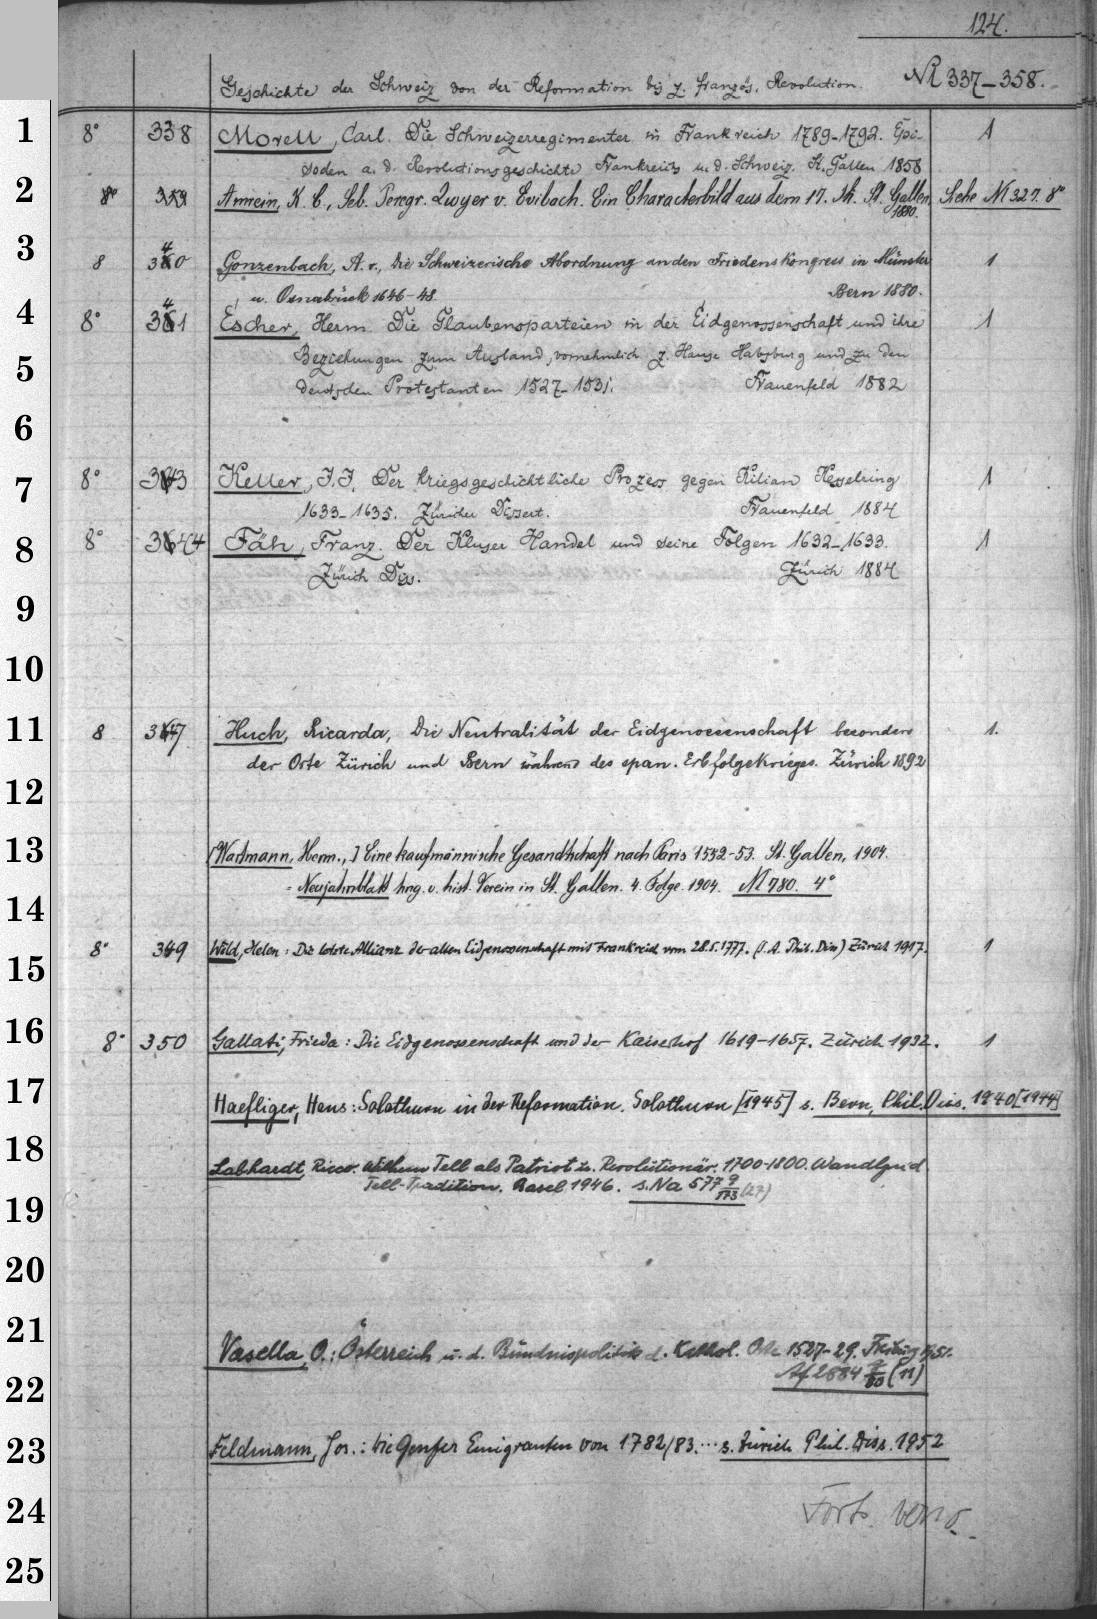 124.
Geschichte der Schweiz von der Reformation bis z. französ. Revolution. NR 337-358.
1 8° 338 Morell, Carl. Die Schweizerregimenter in Frankreich 1789-1792. Epi- 1
soden a. d. Revolutionsgeschichte Frankreichs u. d. Schweiz. St. Gallen 1858
2 8° 339 Amrein, K. C., Seb. Peregr. Zwyer v. Evibach. Ein Characterbild aus dem 17. Jh. St. Gallen, Siehe N 327. 8°
1880.
3 8 340 Gonzenbach, A. v., Die Schweizerische Abordnung an den Friedenskongress in Münster 1
u. Osnabrück 1646-48. Bern 1880.
4 8° 341 Escher, Herm. Die Glaubensparteien in der Eidgenossenschaft und ihre 1
Beziehungen zum Ausland, vornehmlich z. Hause Habsburg und zu den
5 deutschen Protestanten 1527-1531. Frauenfeld 1882
6
7 8° 343 Keller, J. J. Der kriegsgeschichtliche Prozess gegen Kilian Kesselring 1
1633-1635. Züricher Dissert. Frauenfeld 1884
8 8° 344 Fäh, Franz. Der Kluser Handel und seine Folgen 1632-1633. 1
Zürich Diss. Zürich 1884
9
10
11 8 347 Huch, Ricarda, Die Neutralität der Eidgenossenschaft besonders 1.
der Orte Zürich und Bern während des span. Erbfolgekrieges. Zürich 1892
12
13 [Wartmann, Herm.,] Eine kaufmännische Gesandtschaft nach Paris 1552-53. St. Gallen, 1904.
= Neujahrsblatt hrg. v. hist. Verein in St. Gallen. 4. Folge. 1904. N 780. 4°
14
15 8° 349 Wild, Helen: Die letzte Allianz der alten Eidgenossenschaft mit Frankreich vom 28.5.1777. (I. A. Phil. Diss) Zürich 1917. 1
16 8° 350 Gallati, Frieda: Die Eidgenossenschaft und der Kaiserhof 1619-1657. Zürich 1932. 1
17 Haefliger, Hans: Solothurn in der Reformation. Solothurn [1945] s. Bern, Phil. Diss. 1940 [1944]
18 Labhardt, Ricco. Wilhelm Tell als Patriot u. Revolutionär. 1700-1800. Wandl. d.
Tell-Tradition. Basel 1946. s. Na 577 9/173 (27)
19
20
21 Vasella, O.: Österreich u. d. Bündnispolitik d. Kathol. Orte 1527-29. Freiburg 1951.
22 Af 2884 /80 (11)
23 Feldmann, Jos.: Die Genfer Emigranten von 1782/83. ... s. Zürich Phil. Diss. 1952
24 Forts. verso.
25